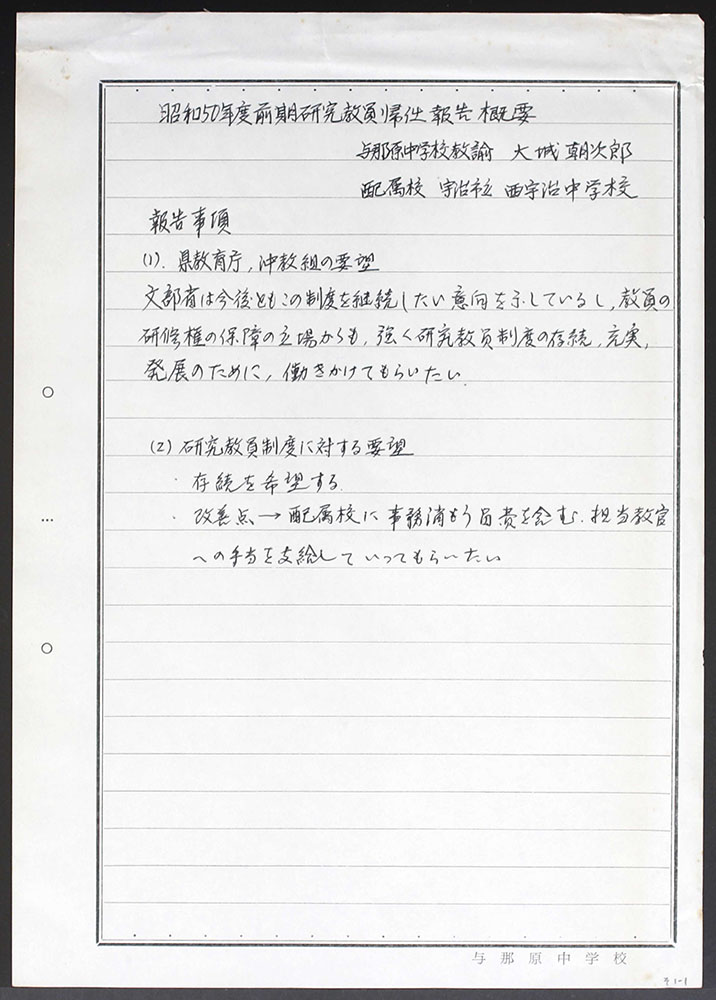 昭和50年度前期研究教員帰任報告概要
与那原中学校教諭 大城朝次郎
配属校 宇治市立 西宇治中学校
報告事項
(1). 県教育庁, 沖教組の要望
文部省は今後ともこの制度を継続したい意向を示しているし, 教員の
研修権の保障の立場からも, 強く研究教員制度の存続, 充実,
発展のために, 働きかけてもらいたい.
(2) 研究教員制度に対する要望
・存続を希望する.
・改善点→配属校に事務消もう品費を含む. 担当教官
への手当を支給していってもらいたい
与那原中学校